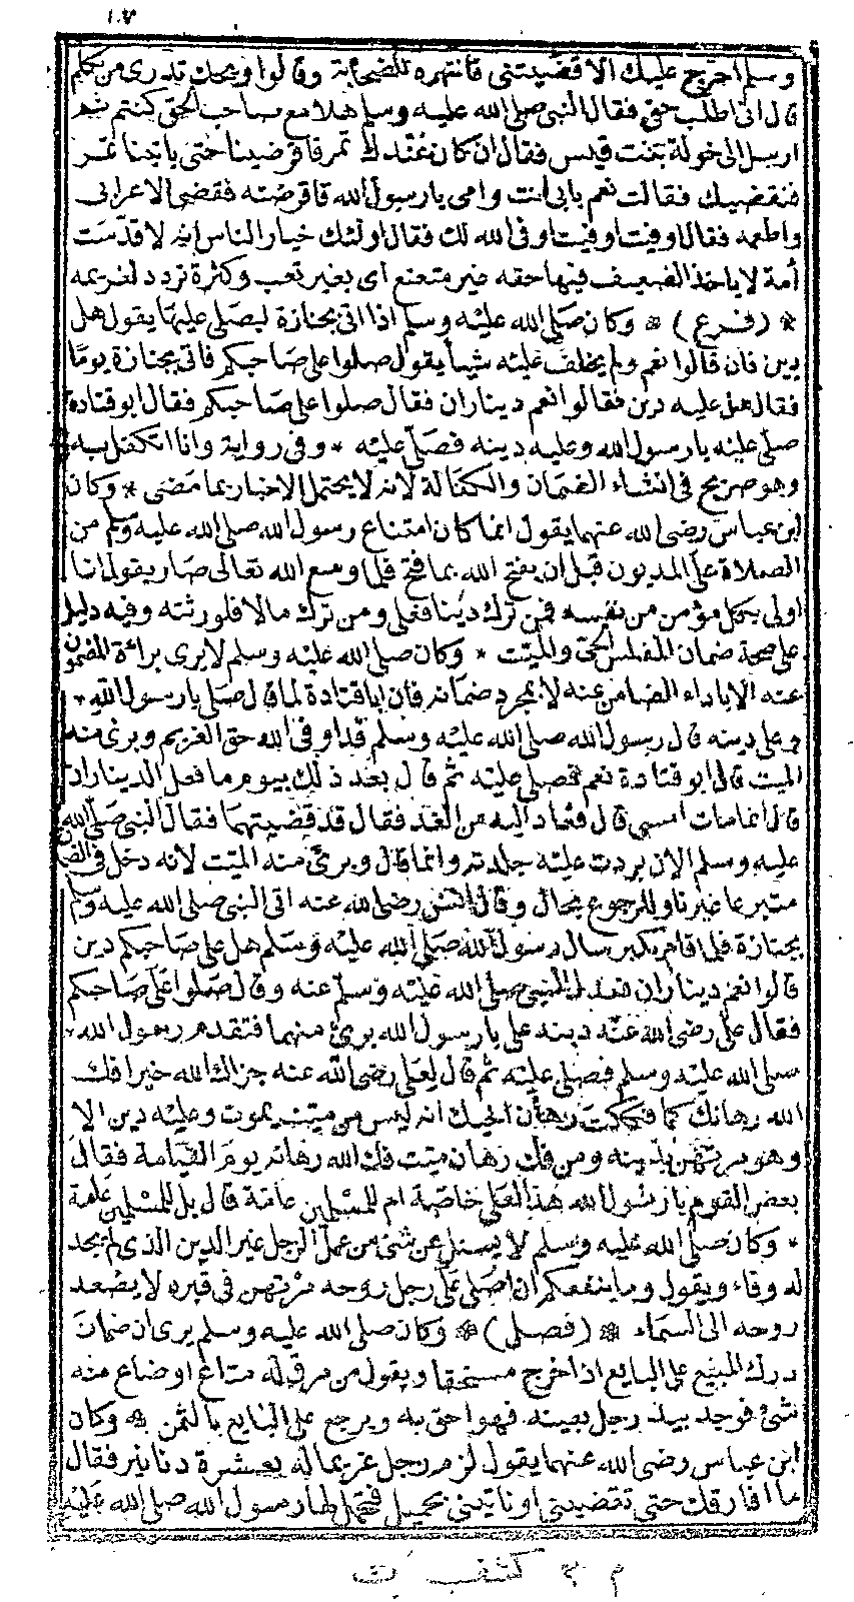 ١٠٧
وسلم احرج عليك الا قضيتني فانتهره الصحابة وقالوا ويحك تدرى من تكلم
قال انى اطلب حقى فقال النبى صلى الله عليه وسلم هلا مع صاحب الحق كنتم ثم
ارسل الى خولة بنت قيس فقال ان كان عندك تمر فاقرضينا حتى ياتينا تمر
فنقضيك فقالت نعم بابى انت وامى يا رسول الله فاقرضته فقضى الاعرابى
واطعمه فقال اوفيت اوفيت اوفى الله لك فقال اولئك خيار الناس انه لا قدست
أمة لا ياخذ الضعيف فيها حقه غير متعتع اى بغير تعب وكثرة تردد لغريمه
* (فرع) * وكان صلى الله عليه وسلم اذا اتى بجنازة ليصلى عليها يقول هل
بدين فان قالوا نعم ولم يخلف عليه شيأ يقول صلوا على صاحبكم فاتى بجنازة يوما
فقال هل عليه دين فقالوا نعم ديناران فقال صلوا على صاحبكم فقال ابو قتادة
صلى عليه يا رسول الله وعليه دينه فصلى عليه * وفى رواية وانا اتكفل به
وهو صريح فى انشاء الضمان والكفالة لانه لا يحتمل الاخبار بما مضى * وكان
ابن عباس رضى الله عنهما يقول انما كان امتناع رسول الله صلى الله عليه وسلم من
الصلاة على المديون قبل ان يفتح الله بما فتح فلما وسع الله تعالى صار يقول انا
اولى بكل مؤمن من نفسه فمن ترك دينا فعلى ومن ترك مالا فلورثته وفيه دليل
على صحة ضمان المفلس الحى والميت * وكان صلى الله عليه وسلم لا يرى براءة المضمون
عنه الا باداء الضامن عنه لا بمجرد ضمانه فان ابا قتادة لما قال صل يا رسول الله *
وعلى دينه قال رسول الله صلى الله عليه وسلم قد اوفى الله حق الغريم وبرئ منه
الميت قال ابو قتادة نعم فصلى عليه ثم قال بعد ذلك بيوم ما فعل الديناران
قال انما مات امس قال فعاد اليه من الغد فقال قد قضيتهما فقال النبى صلى الله
عليه وسلم الان بردت عليه جلدته وانما قال وبرئ منه الميت لانه دخل فى الضمان
متبرعا غير ناو للرجوع بحال وقال انس رضى الله عنه اتى النبى صلى الله عليه وسلم
بجنازة فلما قام يكبر سال رسول الله صلى الله عليه وسلم هل على صاحبكم دين
قالوا نعم ديناران فعدل النبى صلى الله عليه وسلم عنه وقال صلوا على صاحبكم
فقال على رضى الله عنه دينه على يا رسول الله برئ منهما فتقدم رسول الله *
صلى الله عليه وسلم فصلى عليه ثم قال لعلى رضى الله عنه جزاك الله خيرا فك
الله رهانك كما فككت رهان اخيك انه ليس من ميت يموت وعليه دين الا
وهو مرتهن بدينه ومن فك رهان ميت فك الله رهانه يوم القيامة فقال
بعض القوم يا رسول الله هذا لعلى خاصة ام للمسلمين عامة قال بل للمسلمين عامة
* وكان صلى الله عليه وسلم لا يسئل عن شئ من عمل الرجل غير الدين الذى لم يجد
له وفاء ويقول وما ينفعكم ان اصلى على رجل روحه مرتهن فى قبره لا يصعد
روحه الى السماء * (فصل) * وكان صلى الله عليه وسلم يرى ان ضمان
درك المبيع على البايع اذا خرج مستحقا ويقول من سرق له متاع او ضاع منه
شئ فوجد بيد رجل بعينه فهو احق به ويرجع على البايع بالثمن * وكان
ابن عباس رضى الله عنهما يقول لزم رجل غريما له بعشرة دنانير فقال
ما افارقك حتى تقضينى او تاتينى بحميل فتحمل بها رسول الله صلى الله عليه
كشف